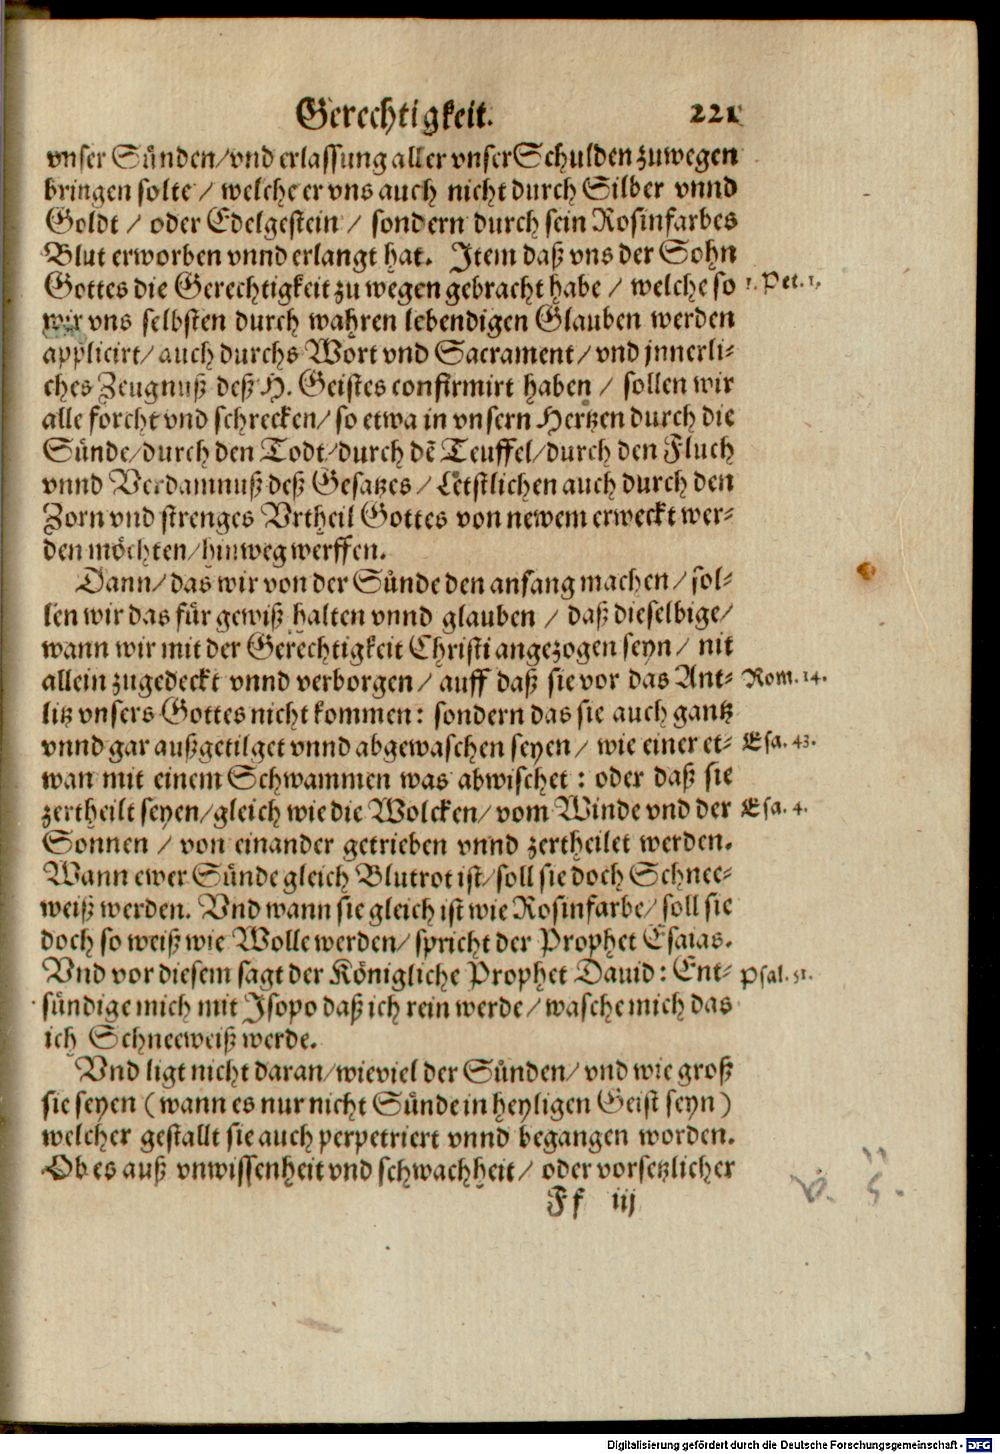 Gerechtigkeit. 221
vnser Sünden/vnd erlassung aller vnser Schulden zuwegen
bringen solte / welche er vns auch nicht durch Silber vnnd
Goldt / oder Edelgestein / sondern durch sein Rosinfarbes
Blut erworben vnnd erlangt hat. Item daß vns der Sohn
Gottes die Gerechtigkeit zu wegen gebracht habe / welche so 1. Pet. 1.
wir vns selbsten durch wahren lebendigen Glauben werden
applicirt/ auch durchs Wort vnd Sacrament/ vnd jnnerli-
ches Zeugnuß deß H. Geistes confirmirt haben / sollen wir
alle forcht vnd schrecken/ so etwa in vnsern Hertzen durch die
Sünde/durch den Todt/durch dē Teuffel/durch den Fluch
vnnd Verdamnuß deß Gesatzes / Letstlichen auch durch den
Zorn vnd strenges Vrtheil Gottes von newem erweckt wer-
den möchten/hinweg werffen.
Dann/ das wir von der Sünde den anfang machen/ sol-
len wir das für gewiß halten vnnd glauben / daß dieselbige/
wann wir mit der Gerechtigkeit Christi angezogen seyn/ nit
allein zugedeckt vnnd verborgen/ auff daß sie vor das Ant- Rom. 14.
litz vnsers Gottes nicht kommen: sondern das sie auch gantz
vnnd gar außgetilget vnnd abgewaschen seyen/ wie einer et- Esa. 43.
wan mit einem Schwammen was abwischet: oder daß sie
zertheilt seyen/gleich wie die Wolcken/ vom Winde vnd der Esa. 4.
Sonnen / von einander getrieben vnnd zertheilet werden.
Wann ewer Sünde gleich Blutrot ist/ soll sie doch Schnee-
weiß werden. Vnd wann sie gleich ist wie Rosinfarbe/ soll sie
doch so weiß wie Wolle werden/ spricht der Prophet Esaias.
Vnd vor diesem sagt der Königliche Prophet Dauid: Ent- Psal. 51.
sündige mich mit Isopo daß ich rein werde/ wasche mich das
ich Schneeweiß werde.
Vnd ligt nicht daran/ wieviel der Sünden/ vnd wie groß
sie seyen (wann es nur nicht Sünde in heyligen Geist seyn)
welcher gestallt sie auch perpetriert vnnd begangen worden.
Ob es auß vnwissenheit vnd schwachheit/ oder vorsetzlicher
Ff iij
Digitalisierung gefördert durch die Deutsche Forschungsgemeinschaft - DFG